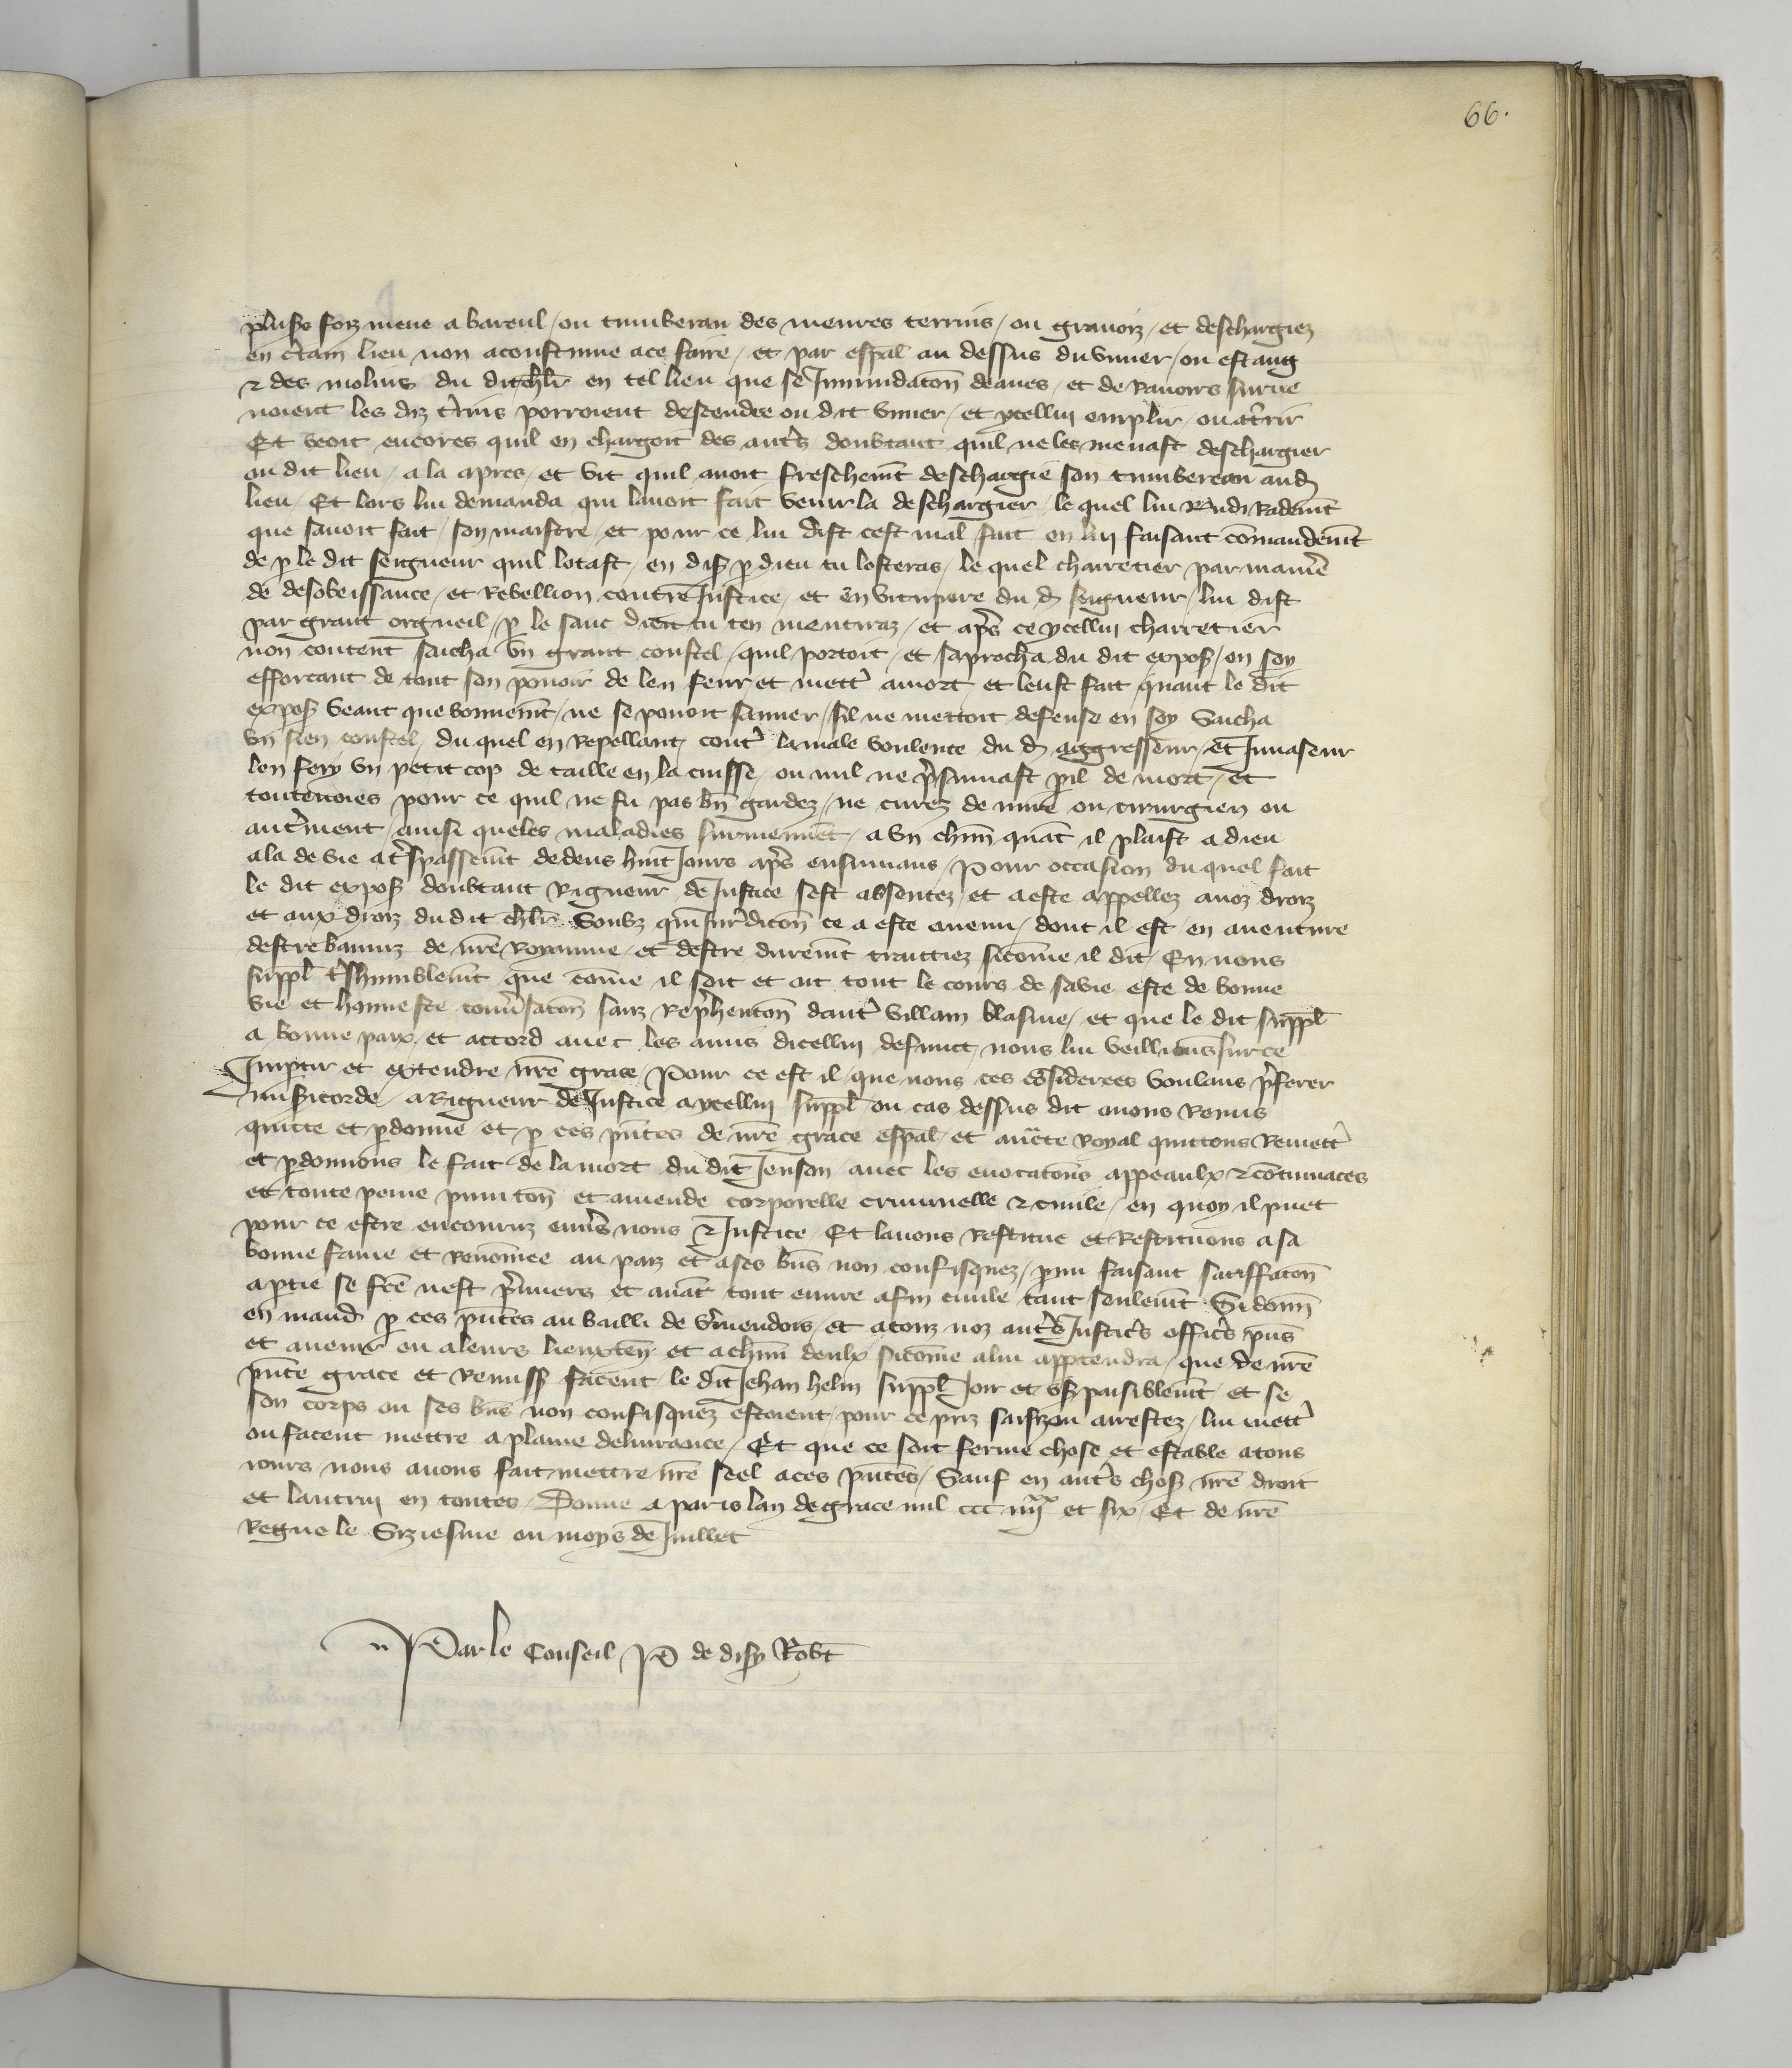 66.
plus͛s foiz mene a bareul / ou tumberau des menres terrins / ou gravoiz / et deschargiez
en c͛tain lieu non acoustume ace faire / et par esp̄al au dessus du vivier / ou estang
⁊ des molins du dit chl̄r en tel lieu que se Innundatōn deaues / et de Ravoirs surve
noient les diz t͛rins porroient descendre ou dit vivier / et ycelluy emplir / ou at͛rir
Et veoit encores quil en chargoit des aut͛s / doubtant quil ne les menast deschargier
ou dit lieu / ala apres / et vit quil avoit freschem̄t deschargie son tumbereau aud
lieu / Et lors lui demanda qui lavoit fait venir la deschargier / le quel lui Rndi Radem̄t
que savoit fait / son maistre / et pour ce lui dist cest mal fait en luy faisant cōmandem̄t
de p le dit seigneur quil lotast / en dis͛ p dieu tu losteras / le quel charretier par manie͛
de desobeissance / et Rebellion contre Justice / et en vitupere du d seigneur / lui dist
par grant orgueil / p le sanc dieu tu ten mentiraz / et ap͛s ce ycelluy charretier
non content saicha vn grant coustel / quil portoit / et saprocha du dit expos / en soy
efforcant de tout son pouoir de len ferir et mett͛ amort et leust fait quant le dit
expos veant que bonnem̄t / ne se pouoit sauver / sil ne mettoit defense en soy Saicha
vn sien coustel / du quel en Repellant / cont͛ la male voulente du d aggresseur / et Invaseur
len fery vn petit cop de taille en la cuisse / ou nul ne p͛sumast p̱il de mort / et
toutevoies pour ce quil ne fu pas bn̄ gardez / ne curez de mire ou cirurgien ou
aut͛ment / ainsi queles maladies surviennēt / a vn chūn quāt il plaist a dieu
ala de vie a t͛spassem̄t dedens huit Jours ap͛s ensuivans / Pour occasion du quel fait
le dit expos doubtant Rigueur de Justice sest absentez / et a este appellez a noz droiz
et aux droiz du dit chl̄r Soubz qui Jur͛dicōn ce a este avenu / dont il est en aventure
destre baniz de nr̄e Royaume / et destre durem̄t traittiez sicōme il dit En nous
suppl̄ t͛shumblem̄t que cōme il soit et ait tout le cours de savie este de bonne
vie et honneste conv͛sacōn sanz Rep͛henciōn daut͛ villain blasme / et que le dit suppl̄
a bonne paix / et accord avec les amis dicelluy defunct / nous lui veillions sur ce
Imp̱tir et extendre nr̄e grace Pour ce est il / que nous ces cōsiderees voulans p͛ferer
mis͛icorde / a Rigueur de Justice aycelluy suppl̄ ou cas dessus dit avons Remis
quitte et p̱donne et p ces p̄ntes de nr̄e grace esp̄al / et auct͛te Royal quittons Remett͛
et p̱donnons le fait de la mort du dit Jenson / avec les evocatōns appeaulx ⁊ cōtumaces
et toute peine punitōn et amende corporelle criminelle ⁊ civile / en quoy il puet
pour ce estre encouruz env͛s nous ⁊ Justice / Et lavons Restitue et Restituons a sa
bonne fame et Renōmee au paiz et a ses bn̄s non confisquez / p̱mi faisant satisfacōn
a p̱tie se fc̄e nest p͛miers et avāt tout euvre afin civile tant seulem̄t Si donn̄
en mand p ces p̄ntes au bailli de v͛mendois / et atouz noz aut͛s Justic͛s offic͛s p̄ns
et avenir ou aleurs lieuxten̄ et achūn deulx sicōme alui app̱tendra / que de nr̄e
p̄nte grace et Remiss͛ facent / le dit Jehan helin suppl̄ Joir et us͛ paisiblem̄t / et se
son corps ou ses bn̄s non confisquez estoient / pour ce priz saisiz ou arrestez / lui mett͛
ou facent mettre a plaine delivrance / Et que ce soit ferme chose et estable atous
iours / nous avons fait mettre nr̄e seel aces p̄ntes / Sauf en aut͛s chos͛ nr̄e droit
et lautruy en toutes / Donne a paris lan de grace mil ccc iiijˣˣ et six / Et de nr̄e
Regne le Siziesme ou moys de Juillet
Par le Conseil P de disy Robt̄